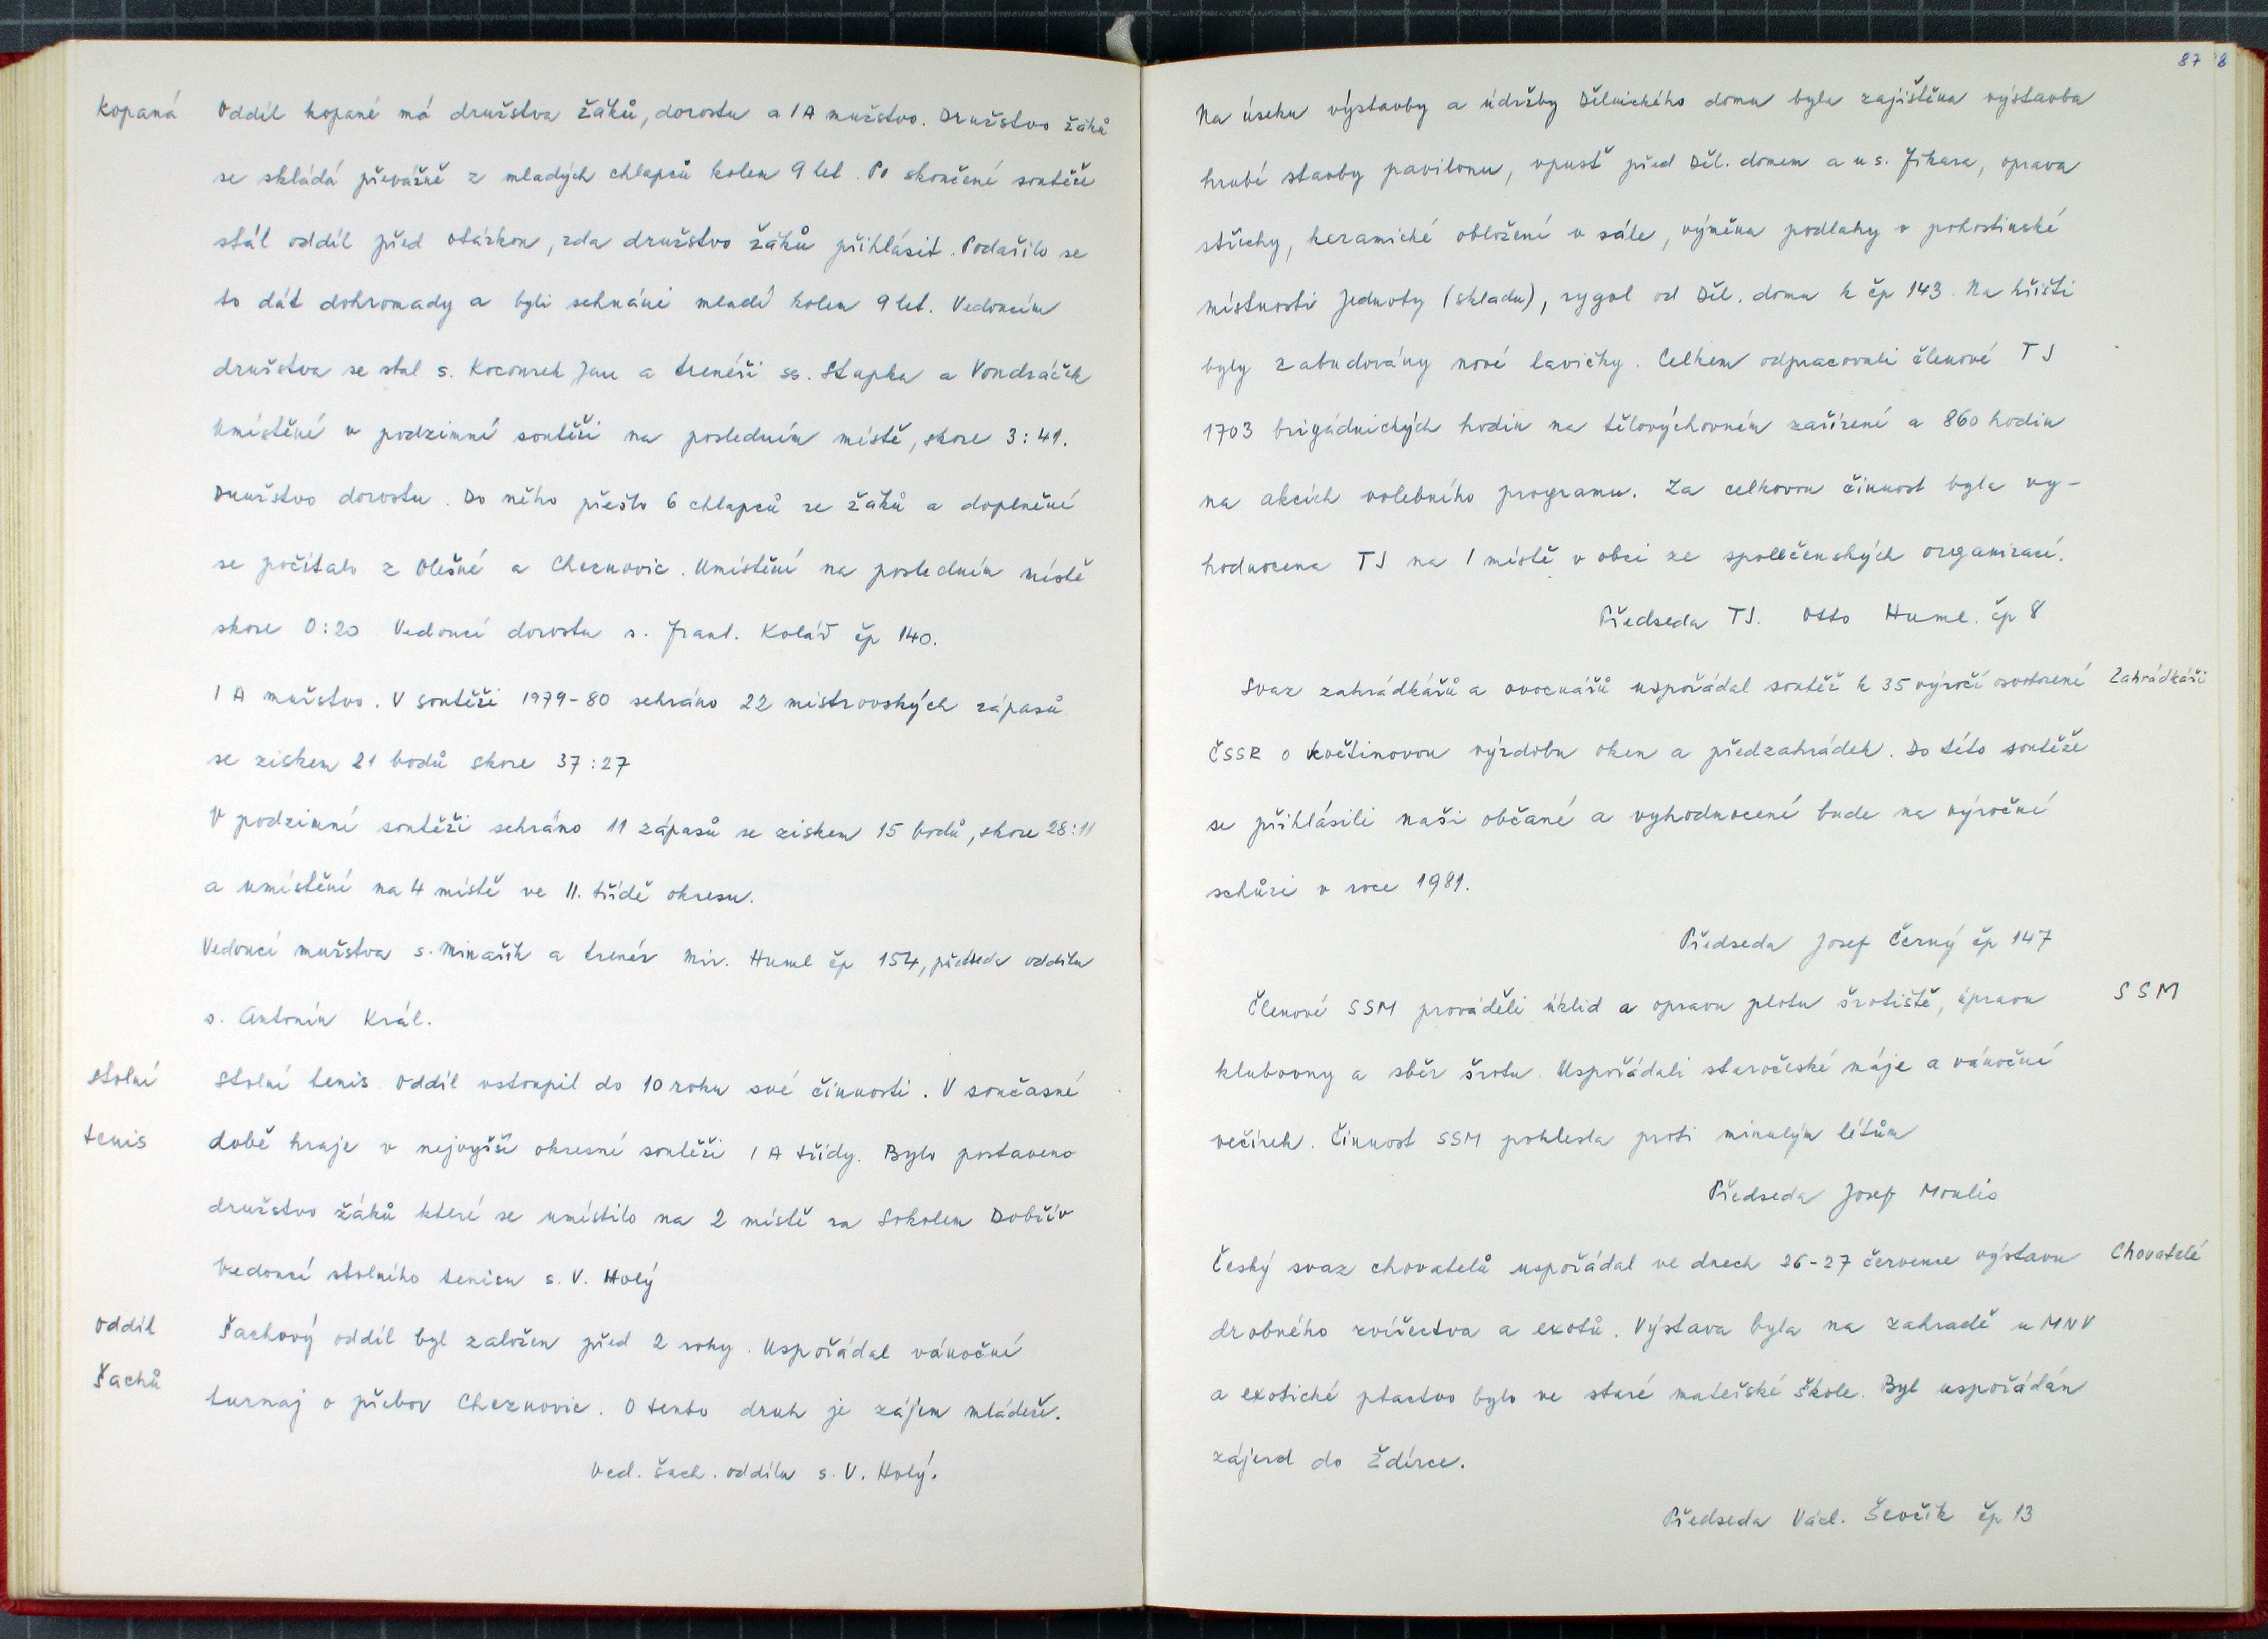 Kopaná
Oddíl kopané má družstva žáků, dorostu a IA mužstvo. Družstvo žáků
se skládá převážně z mladých chlapců kolem 9 let. Po skončené soutěže
stál oddíl před otázkou, zda družstvo žáků přihlásit. Podařilo se
to dát dohromady a byli sehnáni mladí kolem 9 let. Vedoucím
družstva se stal s. Kocourek Jan a trenéři ss. Stupka a Vondráček
Umístění v podzimní soutěži na posledním místě, skore 3:41.
Družstvo dorostu. Do něho přešlo 6 chlapců ze žáků a doplnění
se počítalo z Olešné a Cheznovic. Umístění na posledním místě
skore 0:20 Vedoucí dorostu s. Frant. Kolář čp 140.
I A mužstvo. V soutěži 1979-80 sehráno 22 mistrovských zápasů
se ziskem 21 bodů skore 37:27
V podzimní soutěži sehráno 11 zápasů se ziskem 15 bodů, skore 28:11
a umístění na 4 místě ve II. třídě okresu.
Vedoucí mužstva s. Minařík a trenér Mir. Huml čp 154, předseda oddílu
s. Antonín Král.
Stolní
tenis
Stolní tenis. Oddíl vstoupil do 10 roku své činnosti. V současné
době hraje v nejvyšší okresní soutěži I A třídy. Bylo postaveno
družstvo žáků které se umístilo na 2 místě za Sokolem Dobřív
Vedoucí stolního tenisu s. V. Holý
Oddíl
šachů
Šachový oddíl byl založen před 2 roky. Uspořádal vánoční
turnaj o přebor Cheznovic. O tento druh je zájem mládeže.
Ved. šach. oddílu s. V. Holý.
87 8
Na úseku výstavby a údržby Dělnického domu byla zajištěna výstavba
hrubé stavby pavilonu, vpusť před Děl. domem a u s. Jikara, oprava
střechy, keramické obložení v sále, výměna podlahy v pohostinské
místnosti Jednoty (skladu), rygol od Děl. domu k čp 143. Na hřišti
byly zabudovány nové lavičky. Celkem odpracovali členové TJ
1703 brigádnických hodin na tělovýchovném zařízení a 860 hodin
na akcích volebního programu. Za celkovou činnost byla vy-
hodnocena TJ na 1 místě v obci ze společenských organizací.
Předseda TJ. Otto Huml. čp 8
Svaz zahrádkářů a ovocnářů uspořádal soutěž k 35 výročí osvobození
Zahrádkáři
ČSSR o květinovou výzdobu oken a předzahrádek. Do této soutěže
se přihlásili naši občané a vyhodnocení bude na výroční
schůzi v roce 1981.
Předseda Josef Černý čp 147
Členové SSM prováděli úklid a opravu plotu šrotiště, úpravu
SSM
klubovny a sběr šrotu. Uspořádali staročeské máje a vánoční
večírek. Činnost SSM poklesla proti minulým létům
Předseda Josef Moulis
Český svaz chovatelů uspořádal ve dnech 26-27 července výstavu
Chovatelé
drobného zvířectva a exotů. Výstava byla na zahradě u MNV
a exotické ptactvo bylo ve staré mateřské škole. Byl uspořádán
zájezd do Ždírce.
Předseda Václ. Ševčík čp 13